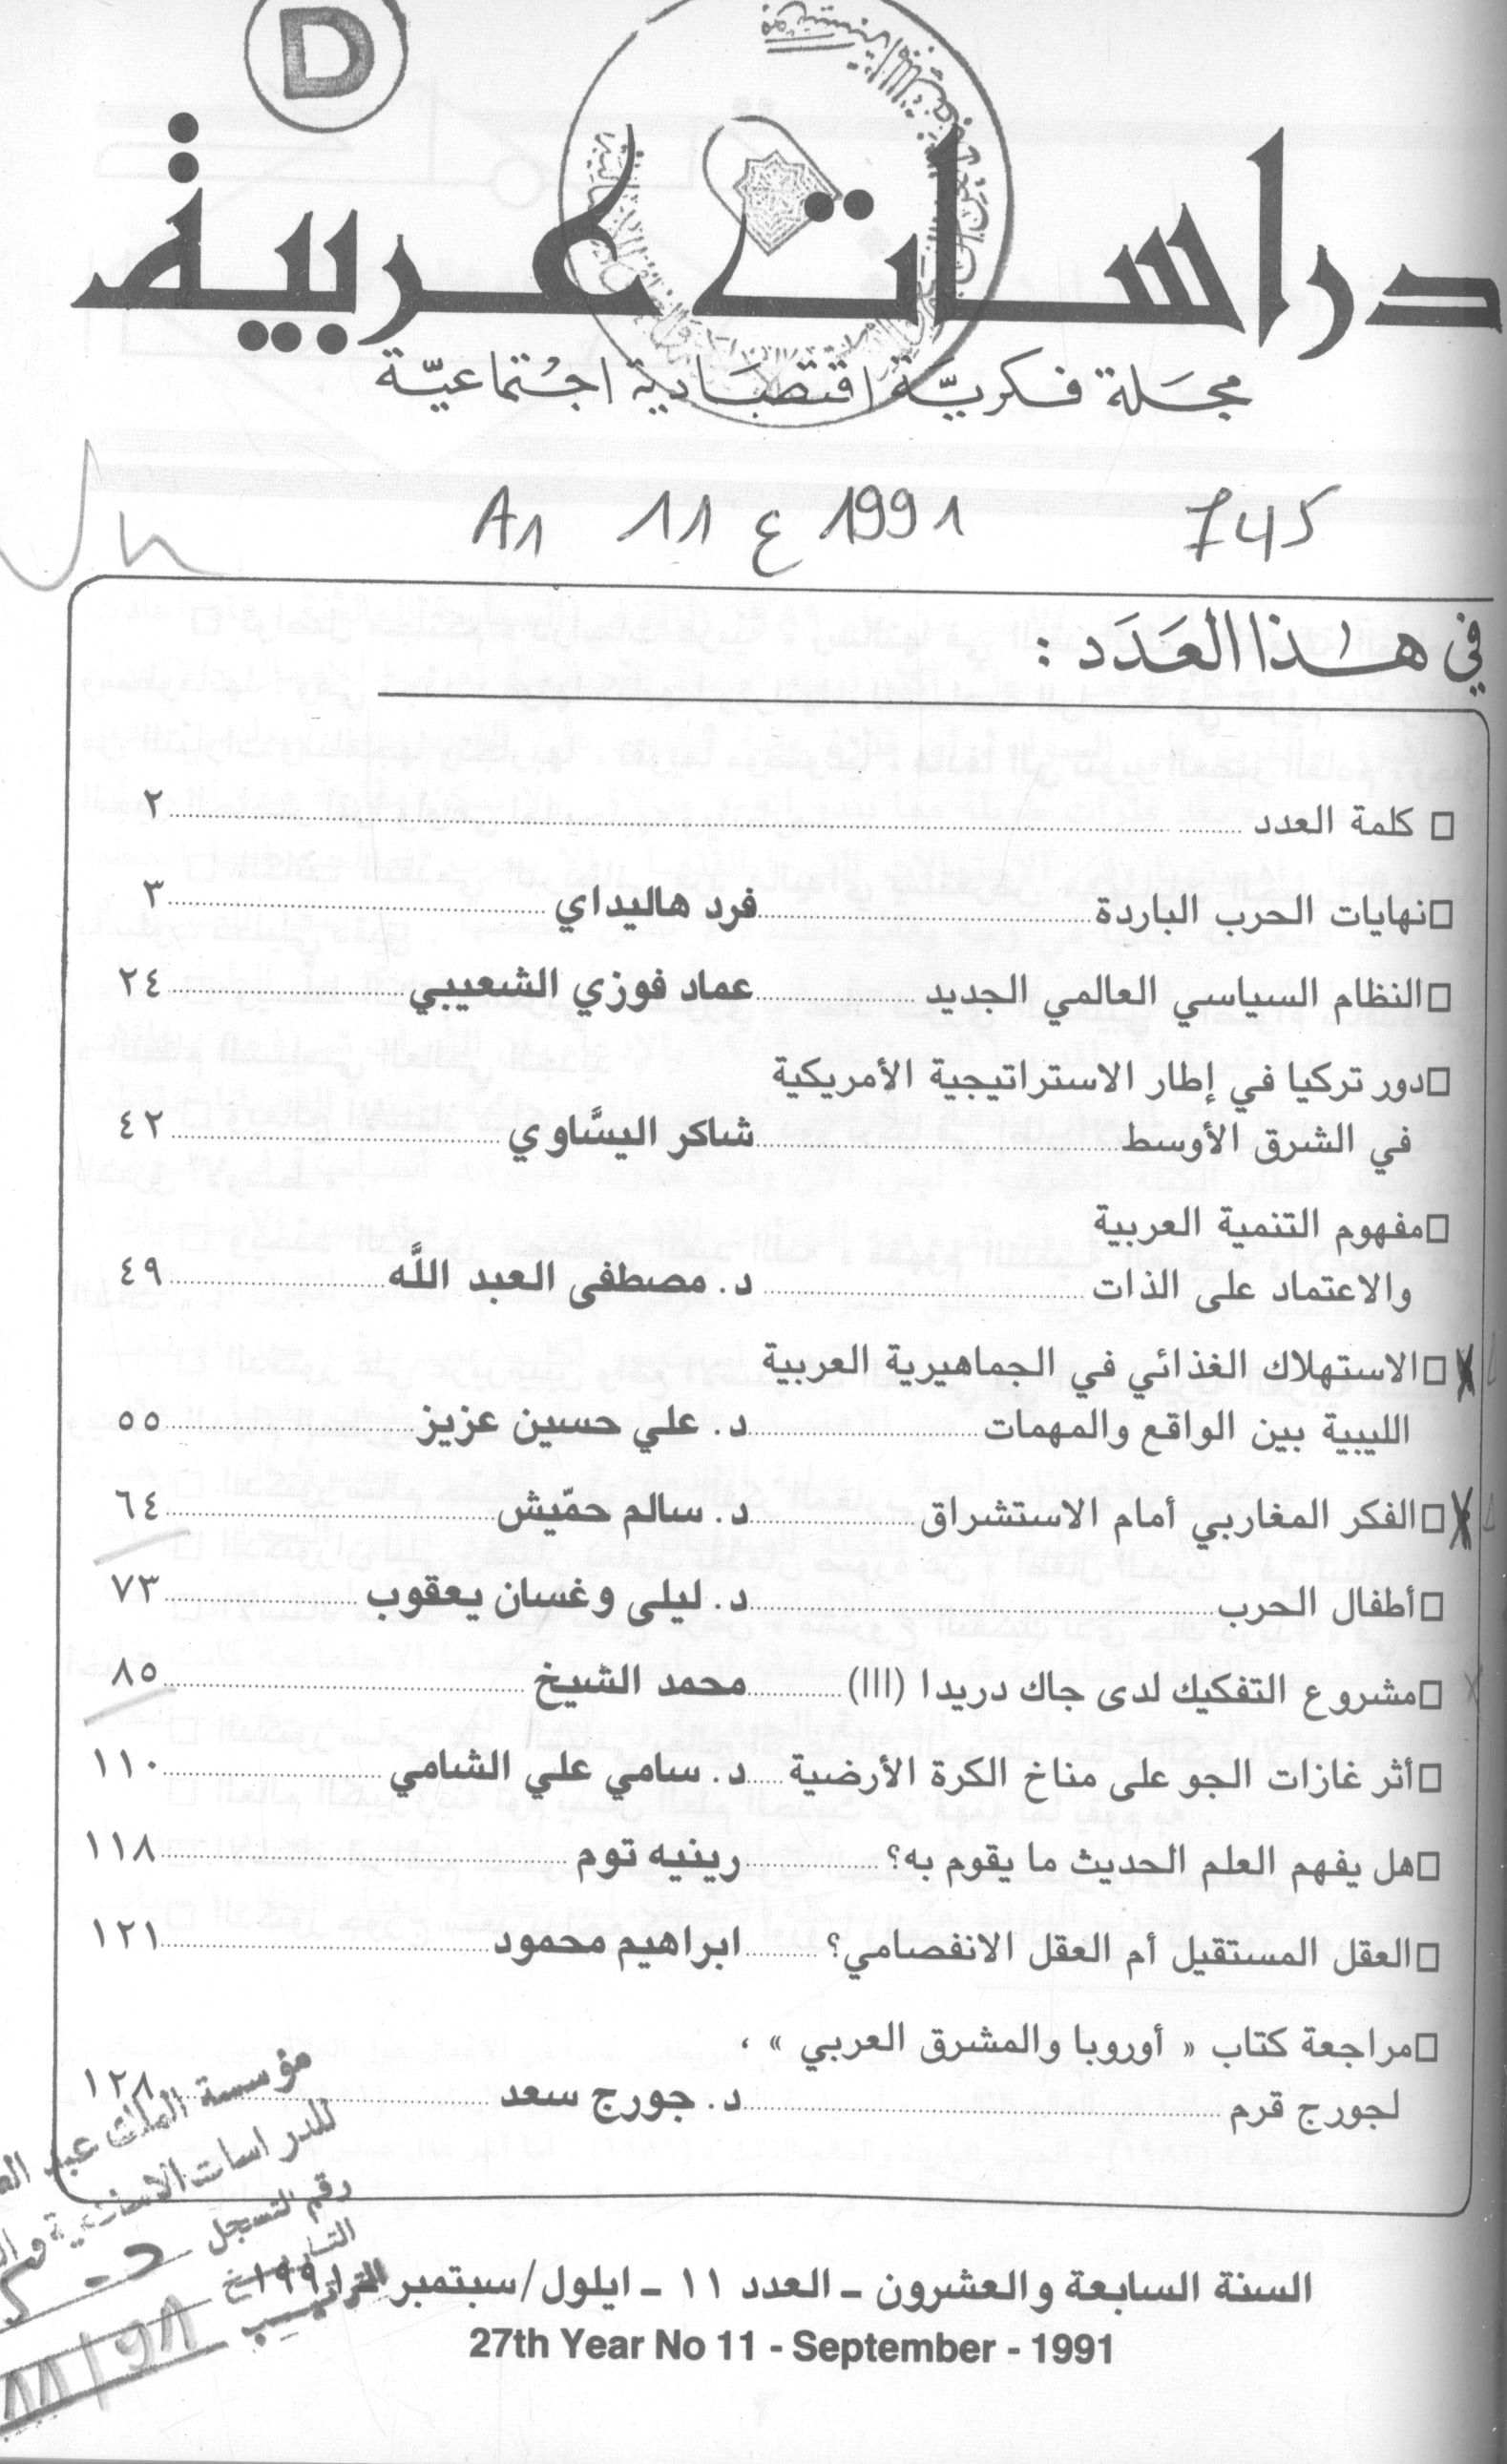 D
دراسات عربية
مجَلة فكريَّة اقتصَادية اجْتماعيَّة
A1 11 ع 1991 745
في هٰذا العَدَد :
□ كلمة العدد ٢
□ نهايات الحرب الباردة فرد هاليداي ٣
□ النظام السياسي العالمي الجديد عماد فوزي الشعيبي ٢٤
□ دور تركيا في إطار الاستراتيجية الأمريكية
في الشرق الأوسط شاكر اليسَّاوي ٤٢
□ مفهوم التنمية العربية
والاعتماد على الذات د. مصطفى العبد اللَّه ٤٩
□ الاستهلاك الغذائي في الجماهيرية العربية
الليبية بين الواقع والمهمات د. علي حسين عزيز ٥٥
□ الفكر المغاربي أمام الاستشراق د. سالم حمّيش ٦٤
□ أطفال الحرب د. ليلى وغسان يعقوب ٧٣
□ مشروع التفكيك لدى جاك دريدا (III) محمد الشيخ ٨٥
□ أثر غازات الجو على مناخ الكرة الأرضية د. سامي علي الشامي ١١٠
□ هل يفهم العلم الحديث ما يقوم به؟ رينيه توم ١١٨
□ العقل المستقيل أم العقل الانفصامي؟ ابراهيم محمود ١٢١
□ مراجعة كتاب « أوروبا والمشرق العربي » ،
لجورج قرم د. جورج سعد ١٢٨
مؤسسة الملك عبد
للدراسات الاسلامية
رقم التسجل
التاريخ
الترتيب
السنة السابعة والعشرون ـ العدد ١١ ـ ايلول/سبتمبر ١٩٩١
27th Year No 11 - September - 1991